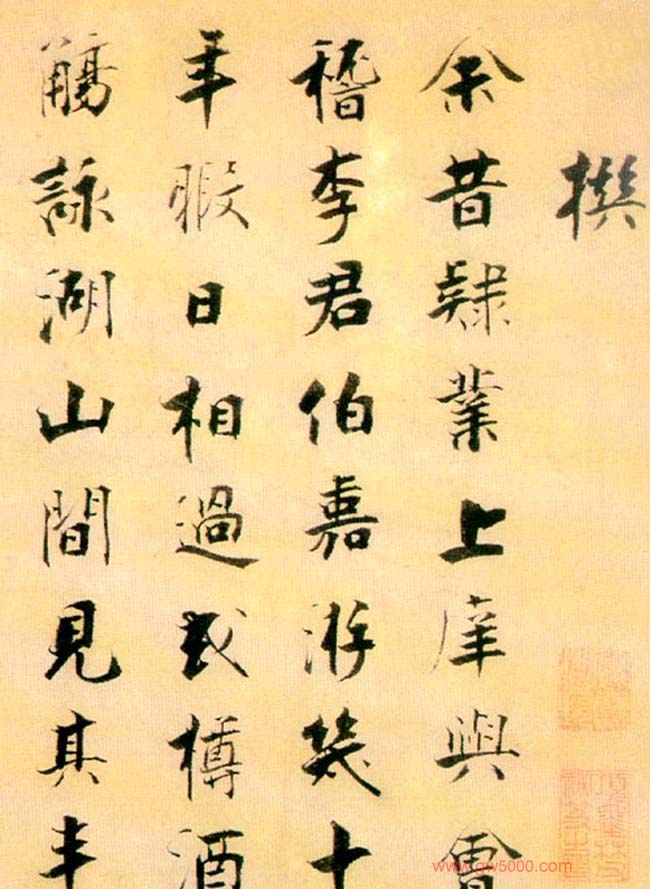 撰
余昔隸業上庠與會
稽李君伯嘉游幾十
年暇日相過或樽酒
觴詠湖山間見其丰
www.gw5000.com